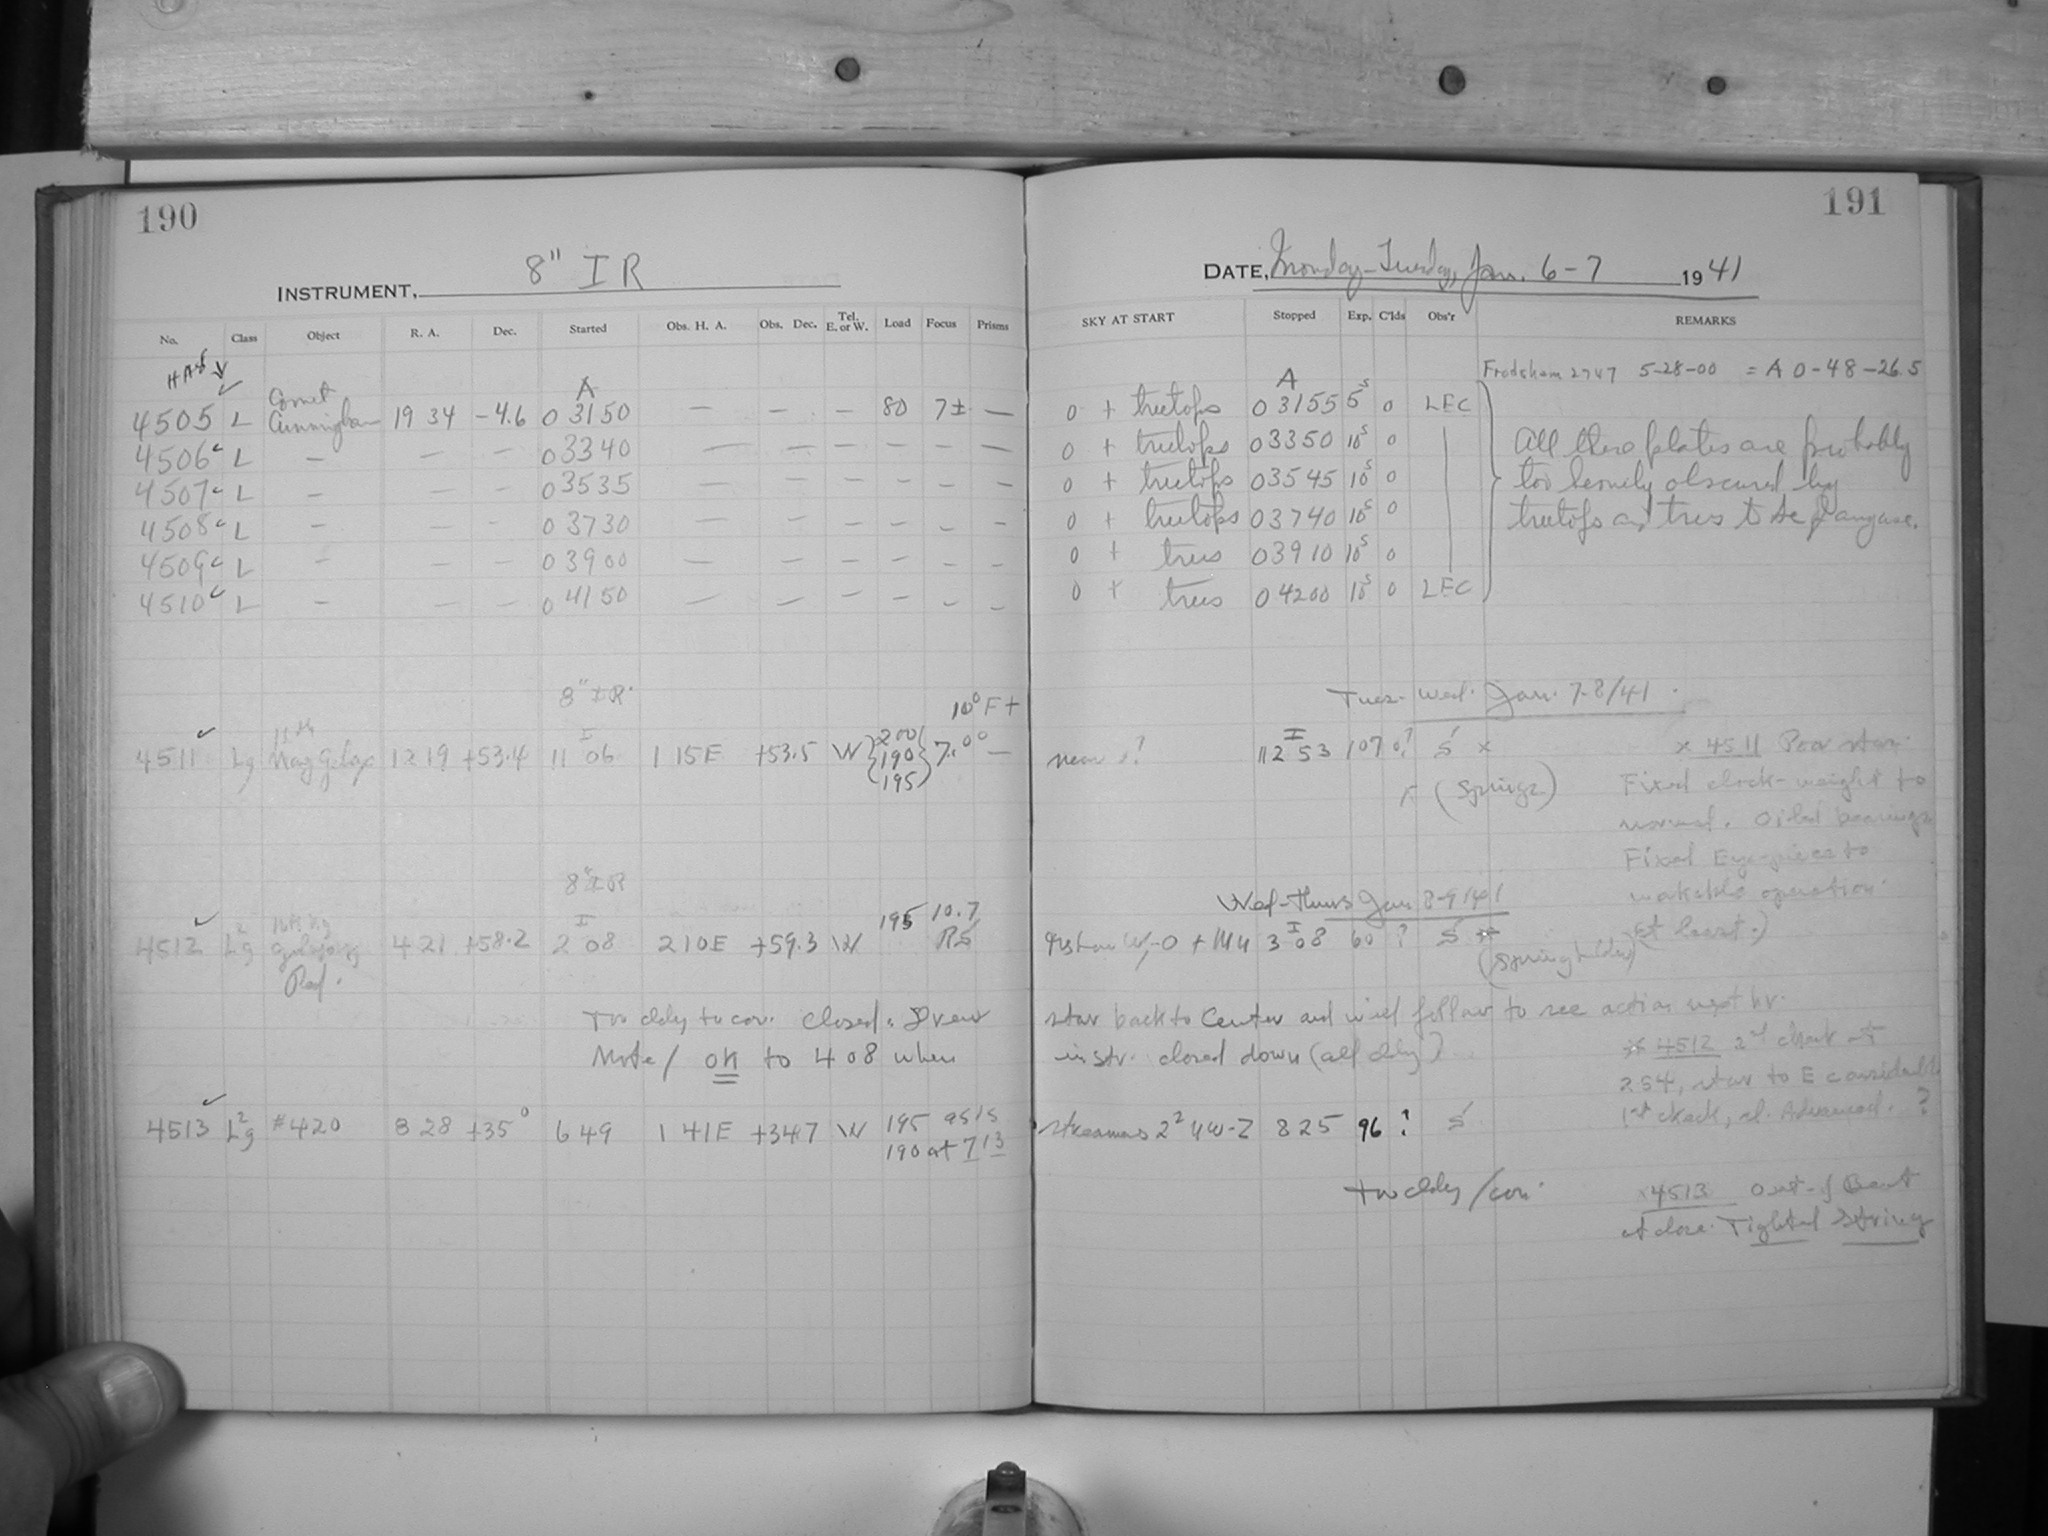 190
191
INSTRUMENT, 8" I R
DATE, Monday-Tuesday, Jan. 6-7 1941
No. Class Object R. A. Dec. Started Obs. H. A. Obs. Dec. Tel. E. or W. Load Focus Prisms
SKY AT START Stopped Exp. C'lds Obs'r REMARKS
Frodsham 2747 5-28-00 = A 0-48-26.5
A
A
4505 L Comet Cunningham 19 34 -4.6 0 31 50 — — — 80 7± —
0 + treetops 0 31 55 5s 0 LEC
4506 L — — — 0 33 40 — — — — — —
0 + treetops 0 33 50 10s 0
4507 L — — — 0 35 35 — — — — — —
0 + treetops 0 35 45 10s 0
4508 L — — — 0 37 30 — — — — — —
0 + treetops 0 37 40 10s 0
4509 L — — — 0 39 00 — — — — — —
0 + trees 0 39 10 10s 0
4510 L — — — 0 41 50 — — — — — —
0 + trees 0 42 00 10s 0 LEC
All these plates are probably
too heavily obscured by
treetops and trees to be of any use.
8" I R.
Tues-Wed. Jan. 7-8/41.
10° F +
I
I
4511 Lg 12 19 +53.4 11 06 1 15E +53.5 W 200 190 195 —
? 12 53 107 ? S x
(Springs)
x 4511 Poor star.
Fixed clock-weight to
normal. Oiled bearings
Fixed Eye-piece to
workable operation.
at least.)
8" I R
Wed-Thurs Jan 8-9/41
I
I
4512 Lg Red. 4 21 +58.2 2 08 2 10E +59.3 W 195 10.7
3 08 60 ? S
Too cldy to con. Closed. Drew
star back to Center and will follow to see action next hr.
Note/ OK to 4 08 when
instr. closed down (all cldy)
4512 2nd check at
254, star to E considerable
1st check, Advanced. ?
4513 L2g #420 8 28 +35° 6 49 1 41E +34.7 W 195 as is
190 at 7 13
streamers 8 25 96 ? S
too cldy/con.
x4513 Out-of Beat
at close. Tighted String